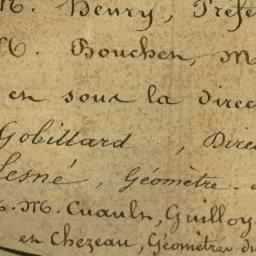 M. Henry, Préfe
M. Bouchen, M
en sous la direc
Gobillard, Dire
Lesné, Géomètre
M.M. Cuault, Guilloy
en Chezeau, Géomètres du